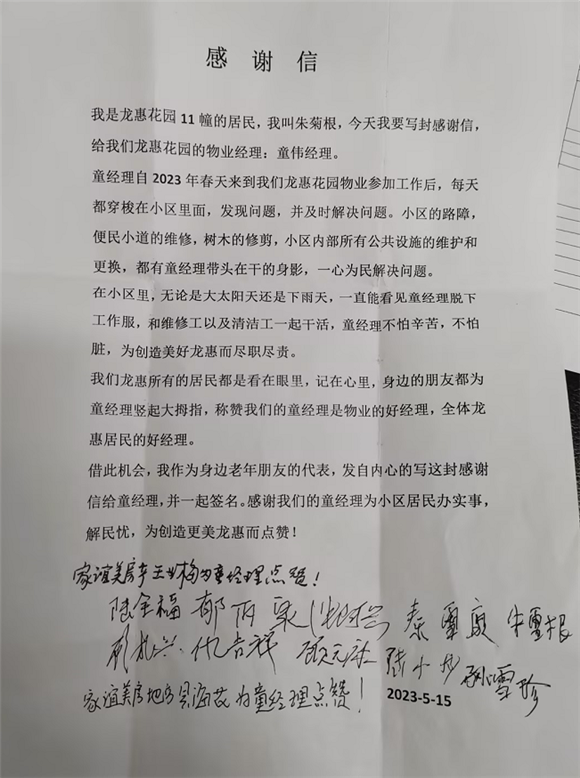 感 谢 信
我是龙惠花园 11 幢的居民，我叫朱菊根，今天我要写封感谢信，
给我们龙惠花园的物业经理：童伟经理。
童经理自 2023 年春天来到我们龙惠花园物业参加工作后，每天
都穿梭在小区里面，发现问题，并及时解决问题。小区的路障，
便民小道的维修，树木的修剪，小区内部所有公共设施的维护和
更换，都有童经理带头在干的身影，一心为民解决问题。
在小区里，无论是大太阳天还是下雨天，一直能看见童经理脱下
工作服，和维修工以及清洁工一起干活，童经理不怕辛苦，不怕
脏，为创造美好龙惠而尽职尽责。
我们龙惠所有的居民都是看在眼里，记在心里，身边的朋友都为
童经理竖起大拇指，称赞我们的童经理是物业的好经理，全体龙
惠居民的好经理。
借此机会，我作为身边老年朋友的代表，发自内心的写这封感谢
信给童经理，并一起签名。感谢我们的童经理为小区居民办实事，
解民忧，为创造更美龙惠而点赞！
家谊美房产王业梅为童经理点赞！
陆金福 郁 秦
仇吉祥 顾元 陆小 雪珍
家谊美房地产 海花为童经理点赞！
2023-5-15